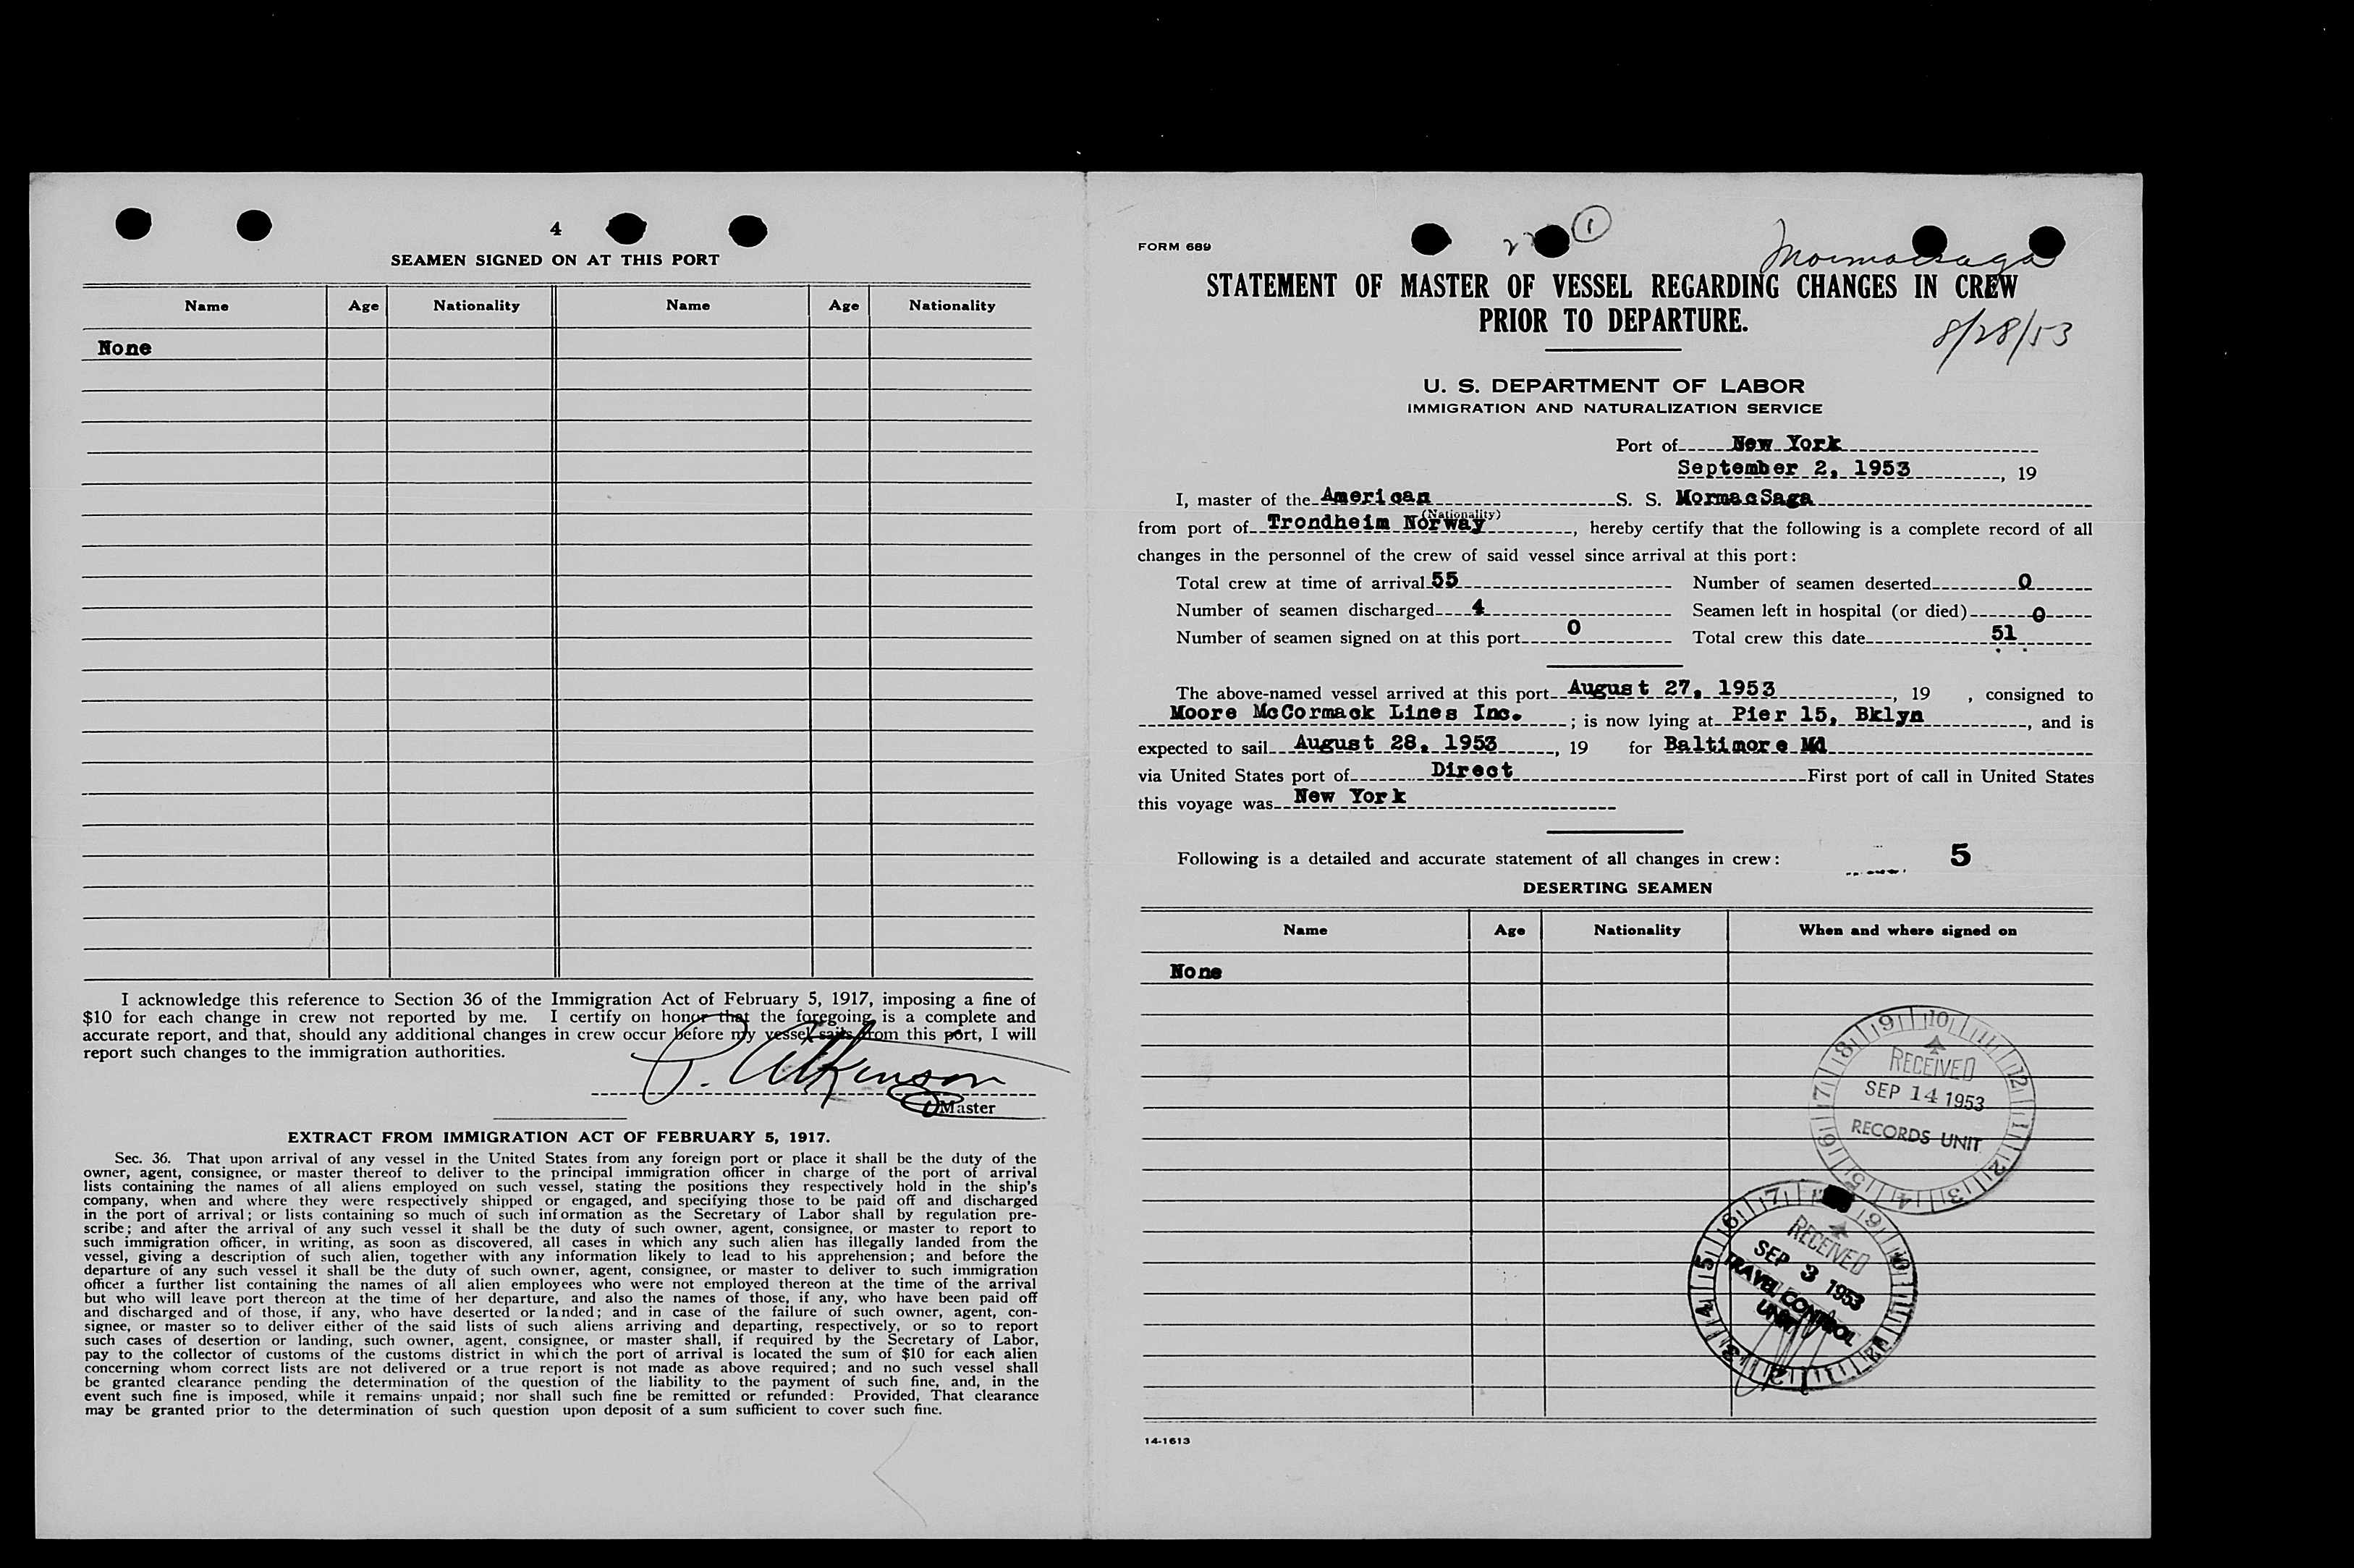 4
SEAMEN SIGNED ON AT THIS PORT
Name Age Nationality Name Age Nationality
None
I acknowledge this reference to Section 36 of the Immigration Act of February 5, 1917, imposing a fine of
$10 for each change in crew not reported by me. I certify on honor that the foregoing is a complete and
accurate report, and that, should any additional changes in crew occur before my vessel sails from this port, I will
report such changes to the immigration authorities.
Atkinson
Master
EXTRACT FROM IMMIGRATION ACT OF FEBRUARY 5, 1917.
Sec. 36. That upon arrival of any vessel in the United States from any foreign port or place it shall be the duty of the
owner, agent, consignee, or master thereof to deliver to the principal immigration officer in charge of the port of arrival
lists containing the names of all aliens employed on such vessel, stating the positions they respectively hold in the ship's
company, when and where they were respectively shipped or engaged, and specifying those to be paid off and discharged
in the port of arrival; or lists containing so much of such information as the Secretary of Labor shall by regulation pre-
scribe; and after the arrival of any such vessel it shall be the duty of such owner, agent, consignee, or master to report to
such immigration officer, in writing, as soon as discovered, all cases in which any such alien has illegally landed from the
vessel, giving a description of such alien, together with any information likely to lead to his apprehension; and before the
departure of any such vessel it shall be the duty of such owner, agent, consignee, or master to deliver to such immigration
officer a further list containing the names of all alien employees who were not employed thereon at the time of the arrival
but who will leave port thereon at the time of her departure, and also the names of those, if any, who have been paid off
and discharged and of those, if any, who have deserted or landed; and in case of the failure of such owner, agent, con-
signee, or master so to deliver either of the said lists of such aliens arriving and departing, respectively, or so to report
such cases of desertion or landing, such owner, agent, consignee, or master shall, if required by the Secretary of Labor,
pay to the collector of customs of the customs district in which the port of arrival is located the sum of $10 for each alien
concerning whom correct lists are not delivered or a true report is not made as above required; and no such vessel shall
be granted clearance pending the determination of the question of the liability to the payment of such fine, and, in the
event such fine is imposed, while it remains unpaid; nor shall such fine be remitted or refunded: Provided, That clearance
may be granted prior to the determination of such question upon deposit of a sum sufficient to cover such fine.
FORM 689
1
Mormacsaga
STATEMENT OF MASTER OF VESSEL REGARDING CHANGES IN CREW
PRIOR TO DEPARTURE.
8/28/53
U. S. DEPARTMENT OF LABOR
IMMIGRATION AND NATURALIZATION SERVICE
Port of New York
September 2, 1953, 19
I, master of the American S. S. MormacSaga
(Nationality)
from port of Trondheim Norway, hereby certify that the following is a complete record of all
changes in the personnel of the crew of said vessel since arrival at this port:
Total crew at time of arrival 55 Number of seamen deserted 0
Number of seamen discharged 4 Seamen left in hospital (or died) 0
Number of seamen signed on at this port 0 Total crew this date 51
The above-named vessel arrived at this port August 27, 1953, 19 , consigned to
Moore McCormack Lines Inc.; is now lying at Pier 15, Bklyn, and is
expected to sail August 28, 1953, 19 for Baltimore Md
via United States port of Direct First port of call in United States
this voyage was New York
Following is a detailed and accurate statement of all changes in crew: 5
DESERTING SEAMEN
Name Age Nationality When and where signed on
None
RECEIVED
SEP 14 1953
RECORDS UNIT
RECEIVED
SEP 3 1953
TRAVEL CONTROL
UNIT
14-1613